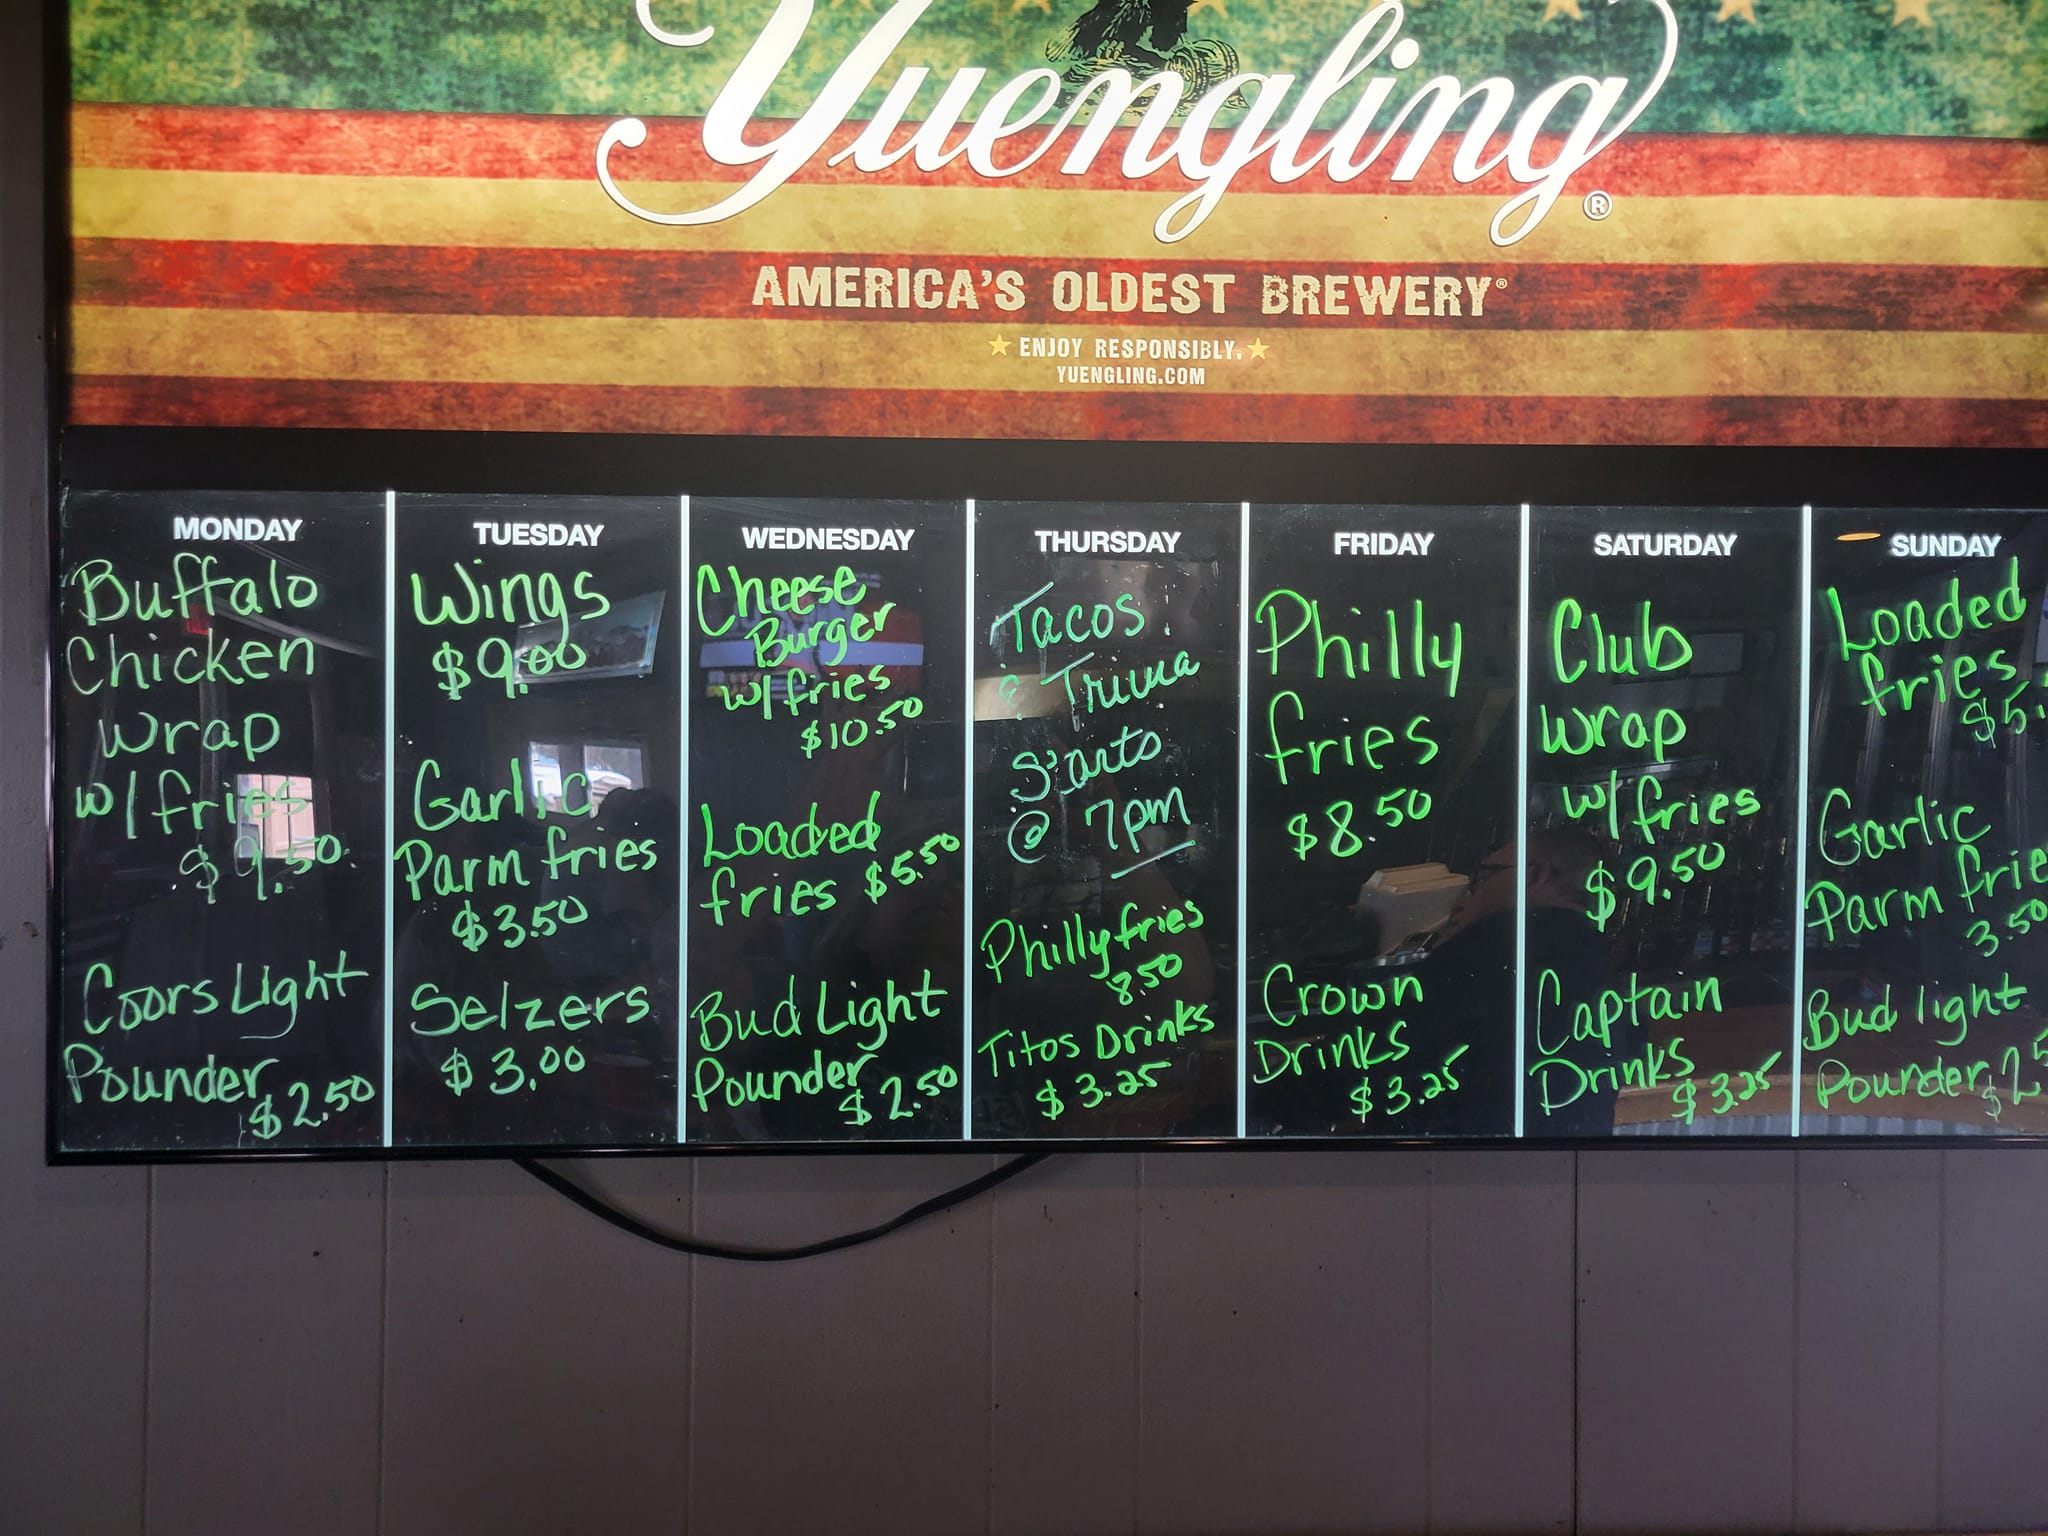 Yuengling®
AMERICA'S OLDEST BREWERY®
ENJOY RESPONSIBLY.
YUENGLING.COM
MONDAY
Buffalo
Chicken
Wrap
w/fries
$9.50
Coors Light
Pounder
$2.50
TUESDAY
Wings
$9.00
Garlic
Parm fries
$3.50
Selzers
$3.00
WEDNESDAY
Cheese
Burger
w/fries
$10.50
Loaded
fries $5.50
Bud Light
Pounder
$2.50
THURSDAY
Tacos
& Trivia
Starts
@ 7pm
Philly fries
8.50
Titos Drinks
$3.25
FRIDAY
Philly
fries
$8.50
Crown
Drinks
$3.25
SATURDAY
Club
Wrap
w/fries
$9.50
Captain
Drinks
$3.25
SUNDAY
Loaded
fries
$5.
Garlic
Parm frie
3.50
Bud light
Pounder $2.5